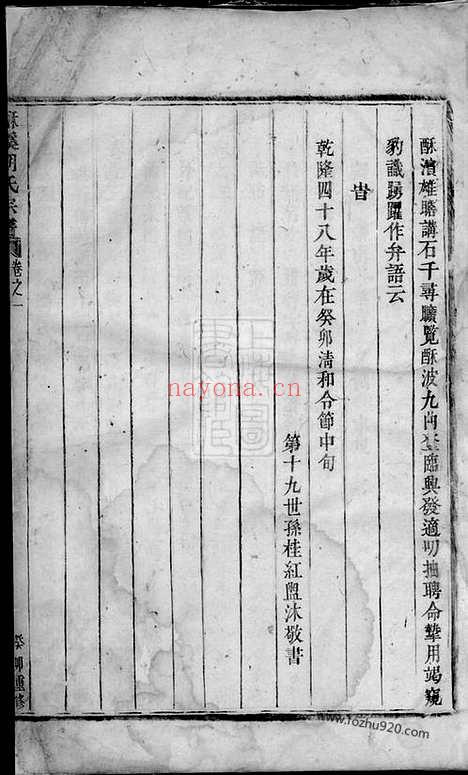 酥濱雄瞻講石千尋曠覽酥波九內登臨興發適叨抽聘命擎用竭窺
豹識踴躍作弁語云
旹
乾隆四十八年歲在癸卯清和令節中旬
第十九世孫桂紅盥沐敬書
酥溪胡氏宗譜
卷之一
癸卯重修
nayona.cn
www.fozhu920.com